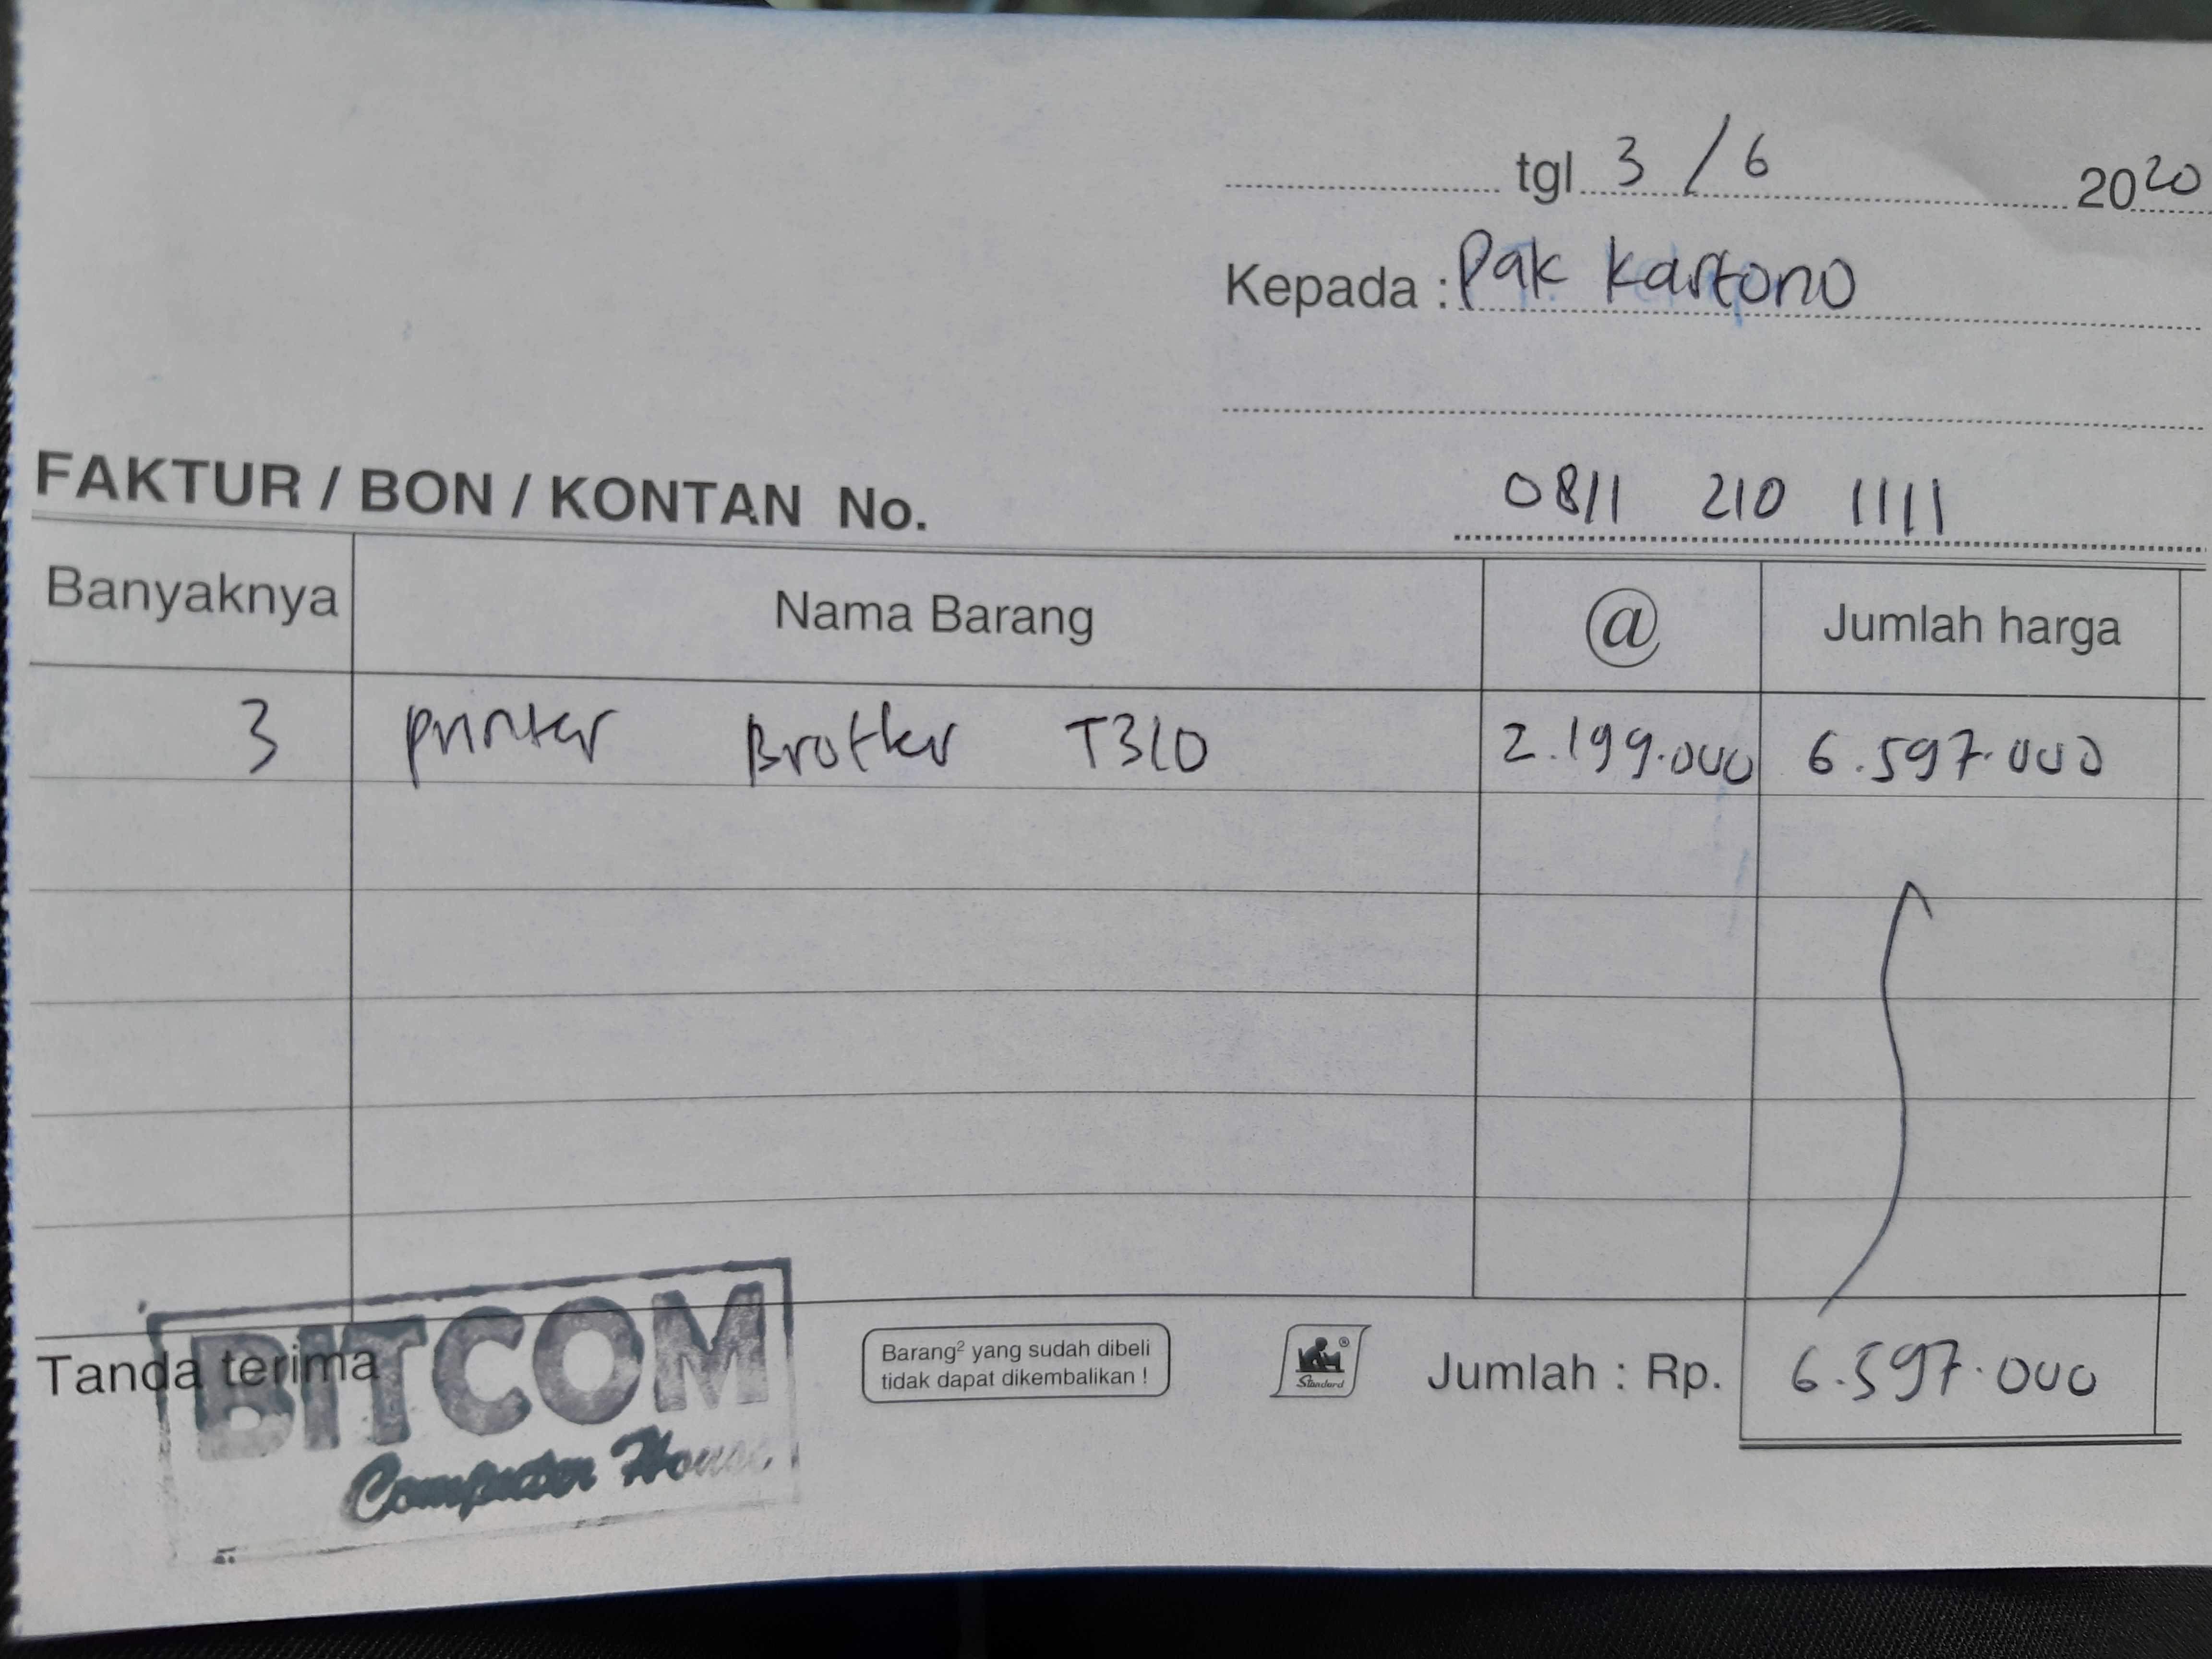 tgl 3 / 6 2020
Kepada : Pak Kartono
FAKTUR / BON / KONTAN No.
0811 210 1111
Banyaknya Nama Barang @ Jumlah harga
3 printer Brother T310 2.199.000 6.597.000
Tanda terima
BITCOM
Computer House
Barang² yang sudah dibeli
tidak dapat dikembalikan !
Standard
Jumlah : Rp. 6.597.000